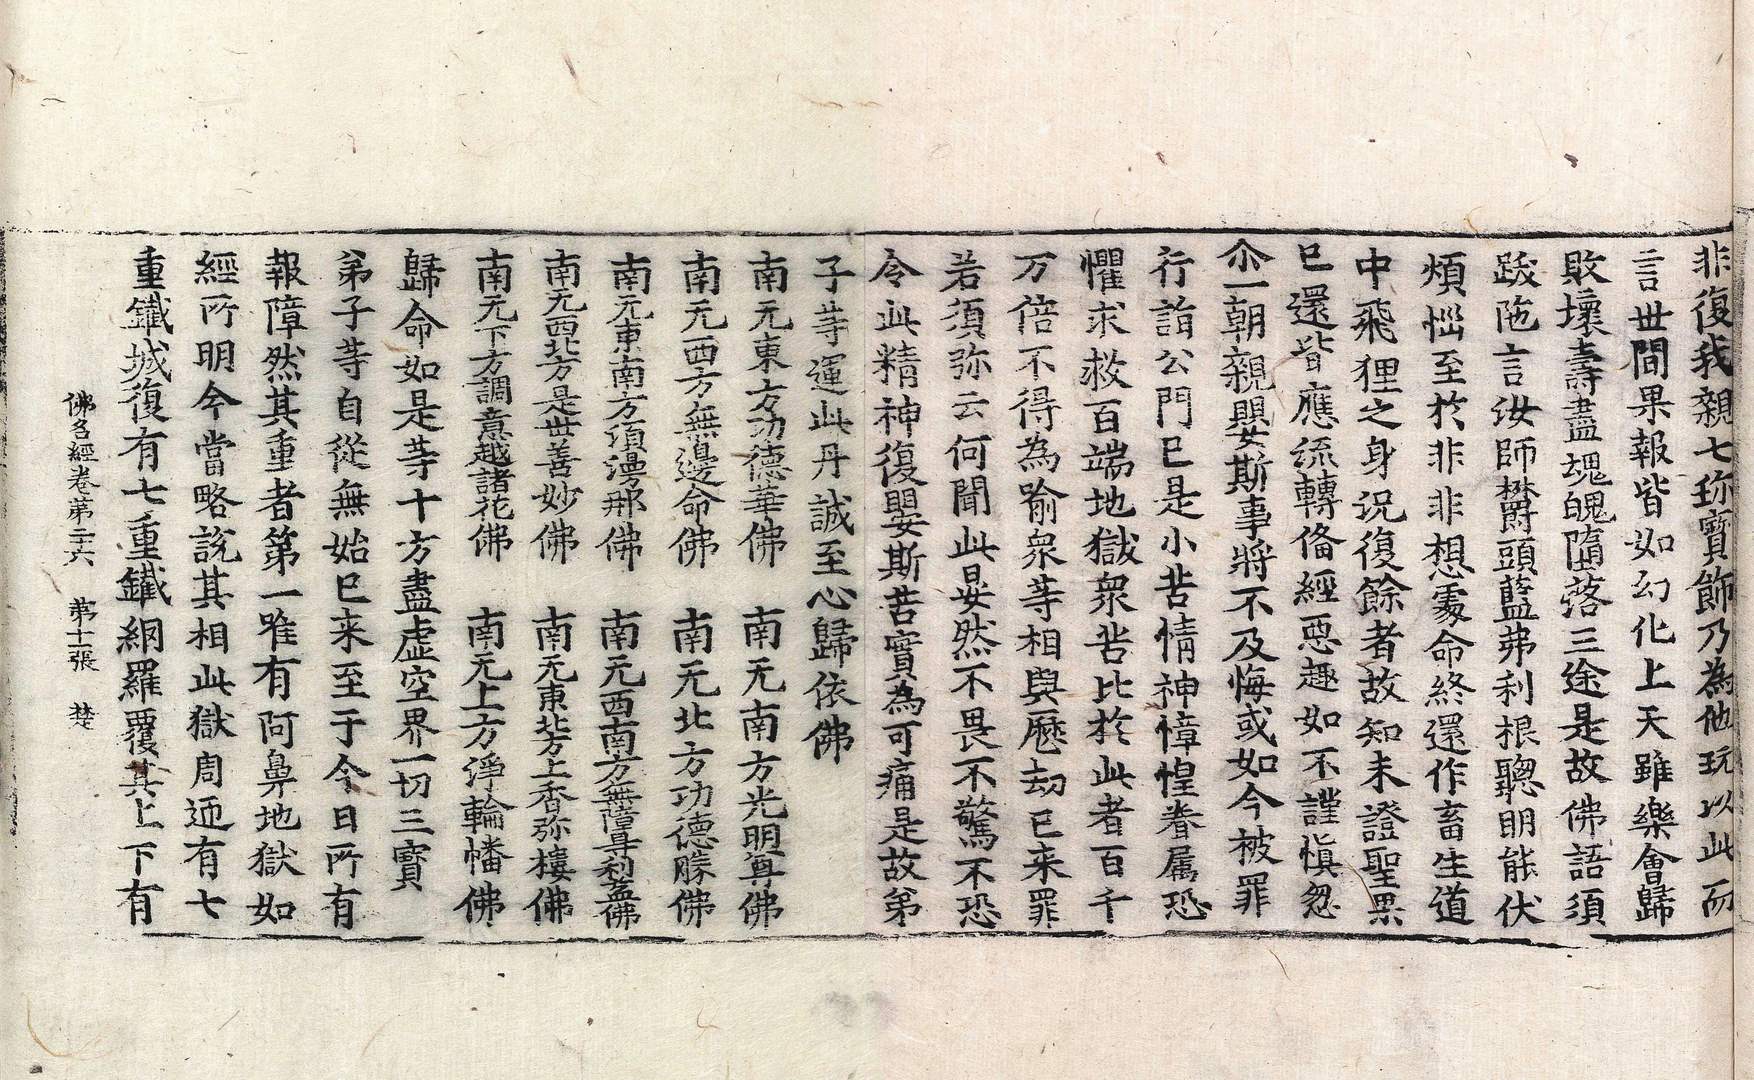 非復我親七珎寶飾乃為他玩以此而
言世間果報皆如幻化上天雖樂會歸
敗壞壽盡魂魄墮落三途是故佛語須
跋陁言汝師欝頭藍弗利根聰明能伏
煩惱至於非非想處命終還作畜生道
中飛狸之身况復餘者故知未證聖果
已還皆應流轉俻經惡趣如不謹慎忽
尒一朝親嬰斯事將不及悔或如今被罪
行詣公門已是小苦情神慞惶眷属恐
懼求救百端地獄衆苦比於此者百千
万倍不得為喻衆等相與歷劫已来罪
若須弥云何聞此晏然不畏不驚不恐
令此精神復嬰斯苦實為可痛是故弟
子等運此丹誠至心歸依佛
南无東方功德華佛　南无南方光明尊佛
南无西方無邊命佛　南无北方功德勝佛
南无東南方須湯那佛　南无西南方無障尋利益佛
南无西北方是世善妙佛　南无東北方上香弥樓佛
南无下方調意越諸花佛　南无上方淨輪幡佛
歸命如是等十方盡虛空界一切三寳
弟子等自從無始已来至于今日所有
報障然其重者第一唯有阿鼻地獄如
經所明今當略說其相此獄周迊有七
重鐵城復有七重鐵網羅覆其上下有
佛名經卷第二六　第十二張　楚